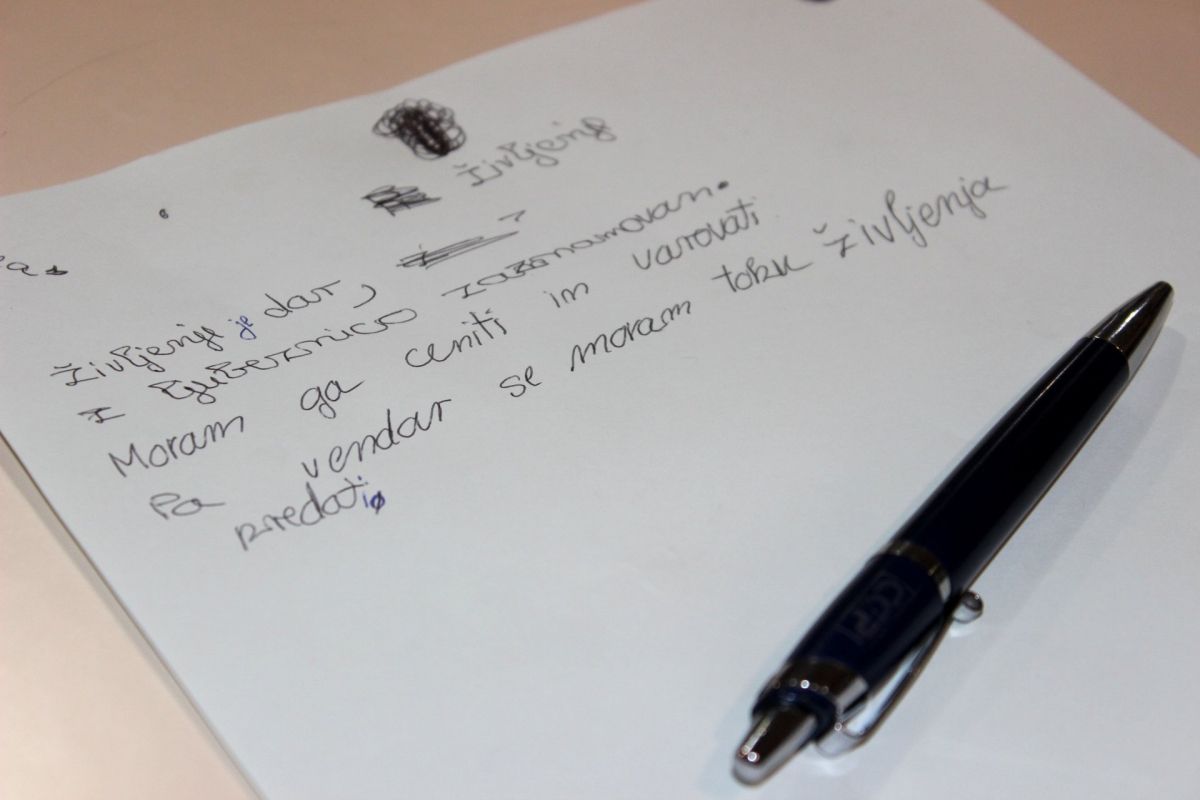 Življenje
Življenje je dar,
z ljubeznijo zaznamovan.
Moram ga ceniti in varovati
Pa vendar se moram toku življenja
predati.